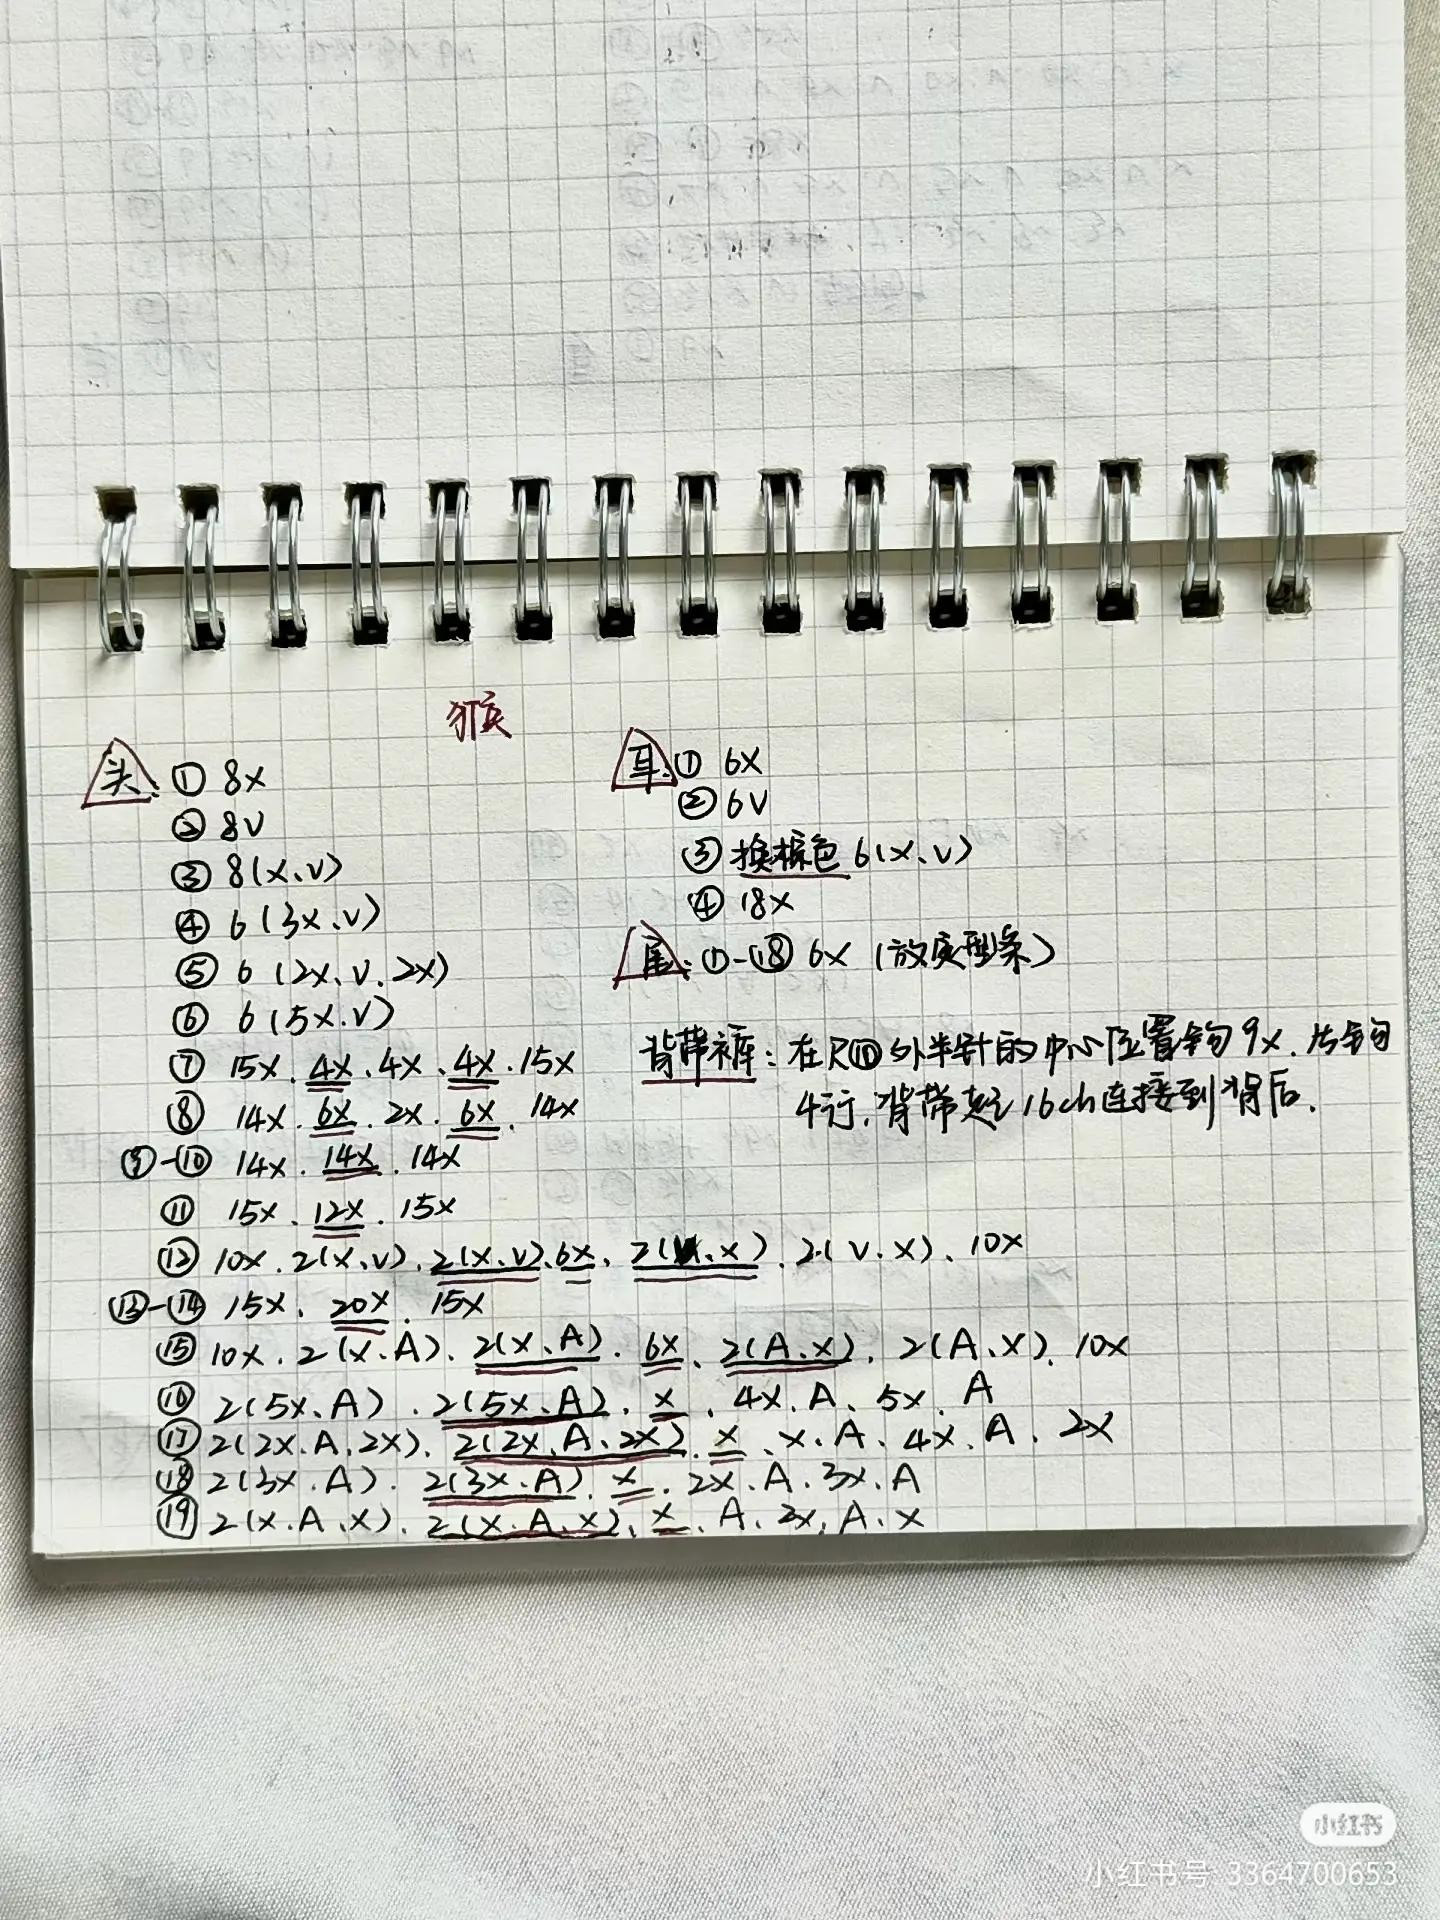 猴
头: ① 8X
② 8V
③ 8(X、V)
④ 6(3X、V)
⑤ 6(2X、V、2X)
⑥ 6(5X.V)
⑦ 15X、4X、4X、4X、15X
⑧ 14X、6X、2X、6X、14X
⑨-⑩ 14X、14X、14X
⑪ 15X、12X、15X
⑫ 10X、2(X、V)、2(X、V)、6X、2(V、X)、2(V、X)、10X
⑬-⑭ 15X、20X、15X
⑮ 10X、2(X、A)、2(X、A)、6X、2(A、X)、2(A、X)、10X
⑯ 2(5X、A)、2(5X、A)、X、4X、A、5X、A
⑰ 2(2X、A、2X)、2(2X、A、2X)、X、X、A、4X、A、2X
⑱ 2(3X、A)、2(3X、A)、X、2X、A、3X、A
⑲ 2(X、A、X)、2(X、A、X)、X、A、2X、A、X
耳: ① 6X
② 6V
③ 换棕色 6(X、V)
④ 18X
尾: ①-⑱ 6X (放定型条)
背带裤: 在R⑩外半针的中心位置钩9X、片钩
4行,背带起16ch连接到背后.
小红书
小红书号 3364700653